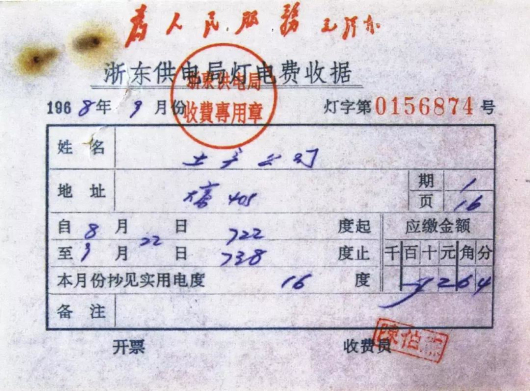 为人民服务 毛泽东
浙东供电局灯电费收据
浙东供电局
收費專用章
1968年9月份 灯字第0156874号
姓名 土产公司
地址 408
期 1
页 16
自8月22日 722度起 应缴金额
至9月 日 738度止 千百十元角分
本月份抄见实用电度 16 度 3264
备注
开票 收费员